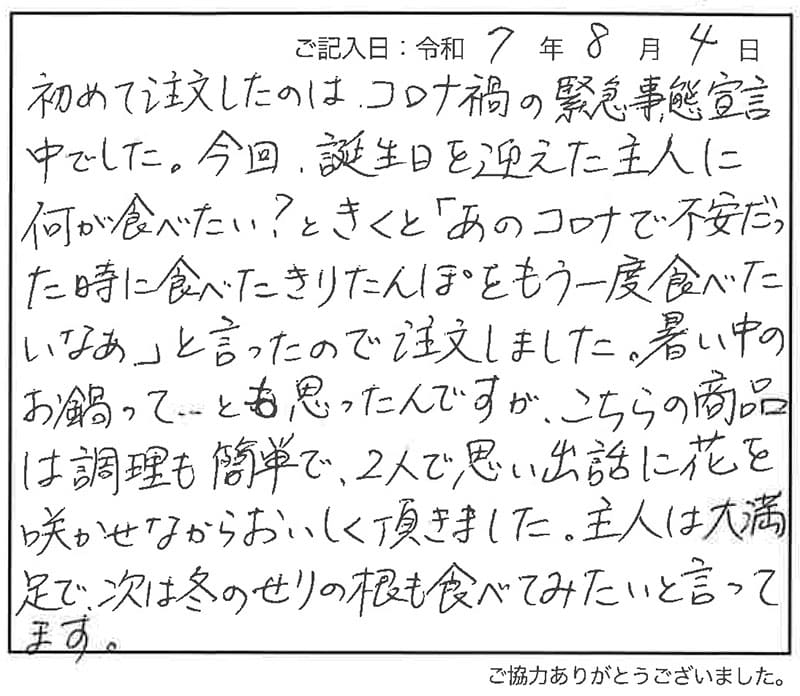 ご記入日：令和 7 年 8 月 4 日
初めて注文したのは、コロナ禍の緊急事態宣言
中でした。今回、誕生日を迎えた主人に
何が食べたい？ときくと「あのコロナで不安だっ
た時に食べたきりたんぽをもう一度食べた
いなぁ」と言ったので注文しました。暑い中の
お鍋って…とも思ったんですが、こちらの商品
は調理も簡単で、2人で思い出話に花を
咲かせながらおいしく頂きました。主人は大満
足で、次は冬のせりの根も食べてみたいと言って
ます。
ご協力ありがとうございました。